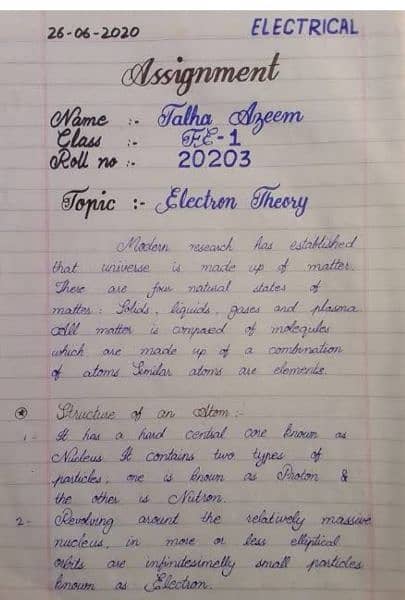 26-06-2020 ELECTRICAL
Assignment
Name :- Talha Azeem
Class :- FE-1
Roll no :- 20203
Topic :- Electron Theory
Modern research has established
that universe is made up of matter.
There are four natural states of
matter: Solids, liquids, gases and plasma.
All matter is composed of molequles
which are made up of a combination
of atoms Similar atoms are elements.
Structure of an Atom :-
1- It has a hard central core known as
Nucleus It contains two types of
particles, one is known as Proton &
the other is Nutron.
2- Revolving around the relatively massive
nucleus, in more or less elliptical
orbits are infinidesimelly small particles
known as Electron.